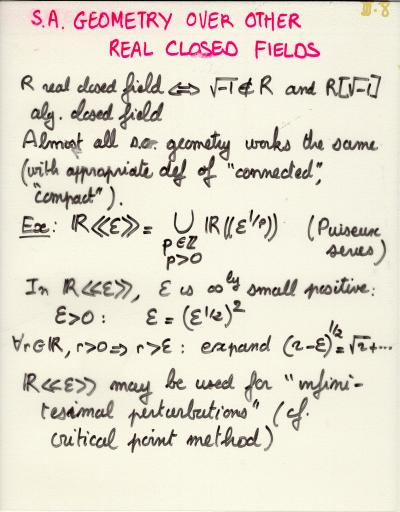 III.8
S.A. GEOMETRY OVER OTHER
REAL CLOSED FIELDS
R real closed field ⇔ √-1 ∉ R and R[√-1]
alg. closed field
Almost all s.a. geometry works the same
(with appropriate def of "connected",
"compact").
Ex: ℝ⟪ε⟫ = ∪ ℝ((ε^{1/p})) (Puiseux
p∈ℤ series)
p>0
In ℝ⟪ε⟫, ε is ∞ly small positive:
ε>0 : ε = (ε^{1/2})^2
∀r∈ℝ, r>0 ⇒ r>ε : expand (r-ε)^{1/2} = √r + ...
ℝ⟪ε⟫ may be used for "infini-
tesimal perturbations" (cf.
critical point method)